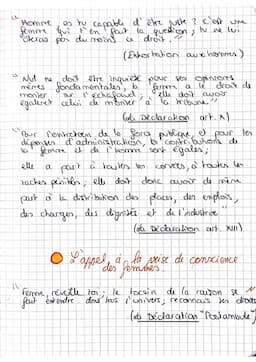 "Homme, es tu capable d'être juste ? C'est une
femme qui t'en fait la question ; tu ne lui
ôteras pas du moins ce droit."
(Exhortation aux hommes)
"Nul ne doit être inquiété pour ses opinions
mêmes fondamentales, la femme a le droit de
monter sur l'échafaud ; elle doit avoir
également celui de monter à la tribune."
(la Déclaration art. X)
"Pour l'entretien de la force publique, et pour les
dépenses d'administration, les contributions de
la femme et de l'homme sont égales ;
elle a part à toutes les corvées, à toutes les
taches pénibles ; elle doit donc avoir de même
part à la distribution des places, des emplois,
des charges, des dignités et de l'industrie.
(la Déclaration art. XIII)
L'appel à la prise de conscience
des femmes.
"Femme, réveille toi ; le tocsin de la raison se
fait entendre dans tout l'univers ; reconnais tes droits
(la Déclaration "Postambule")